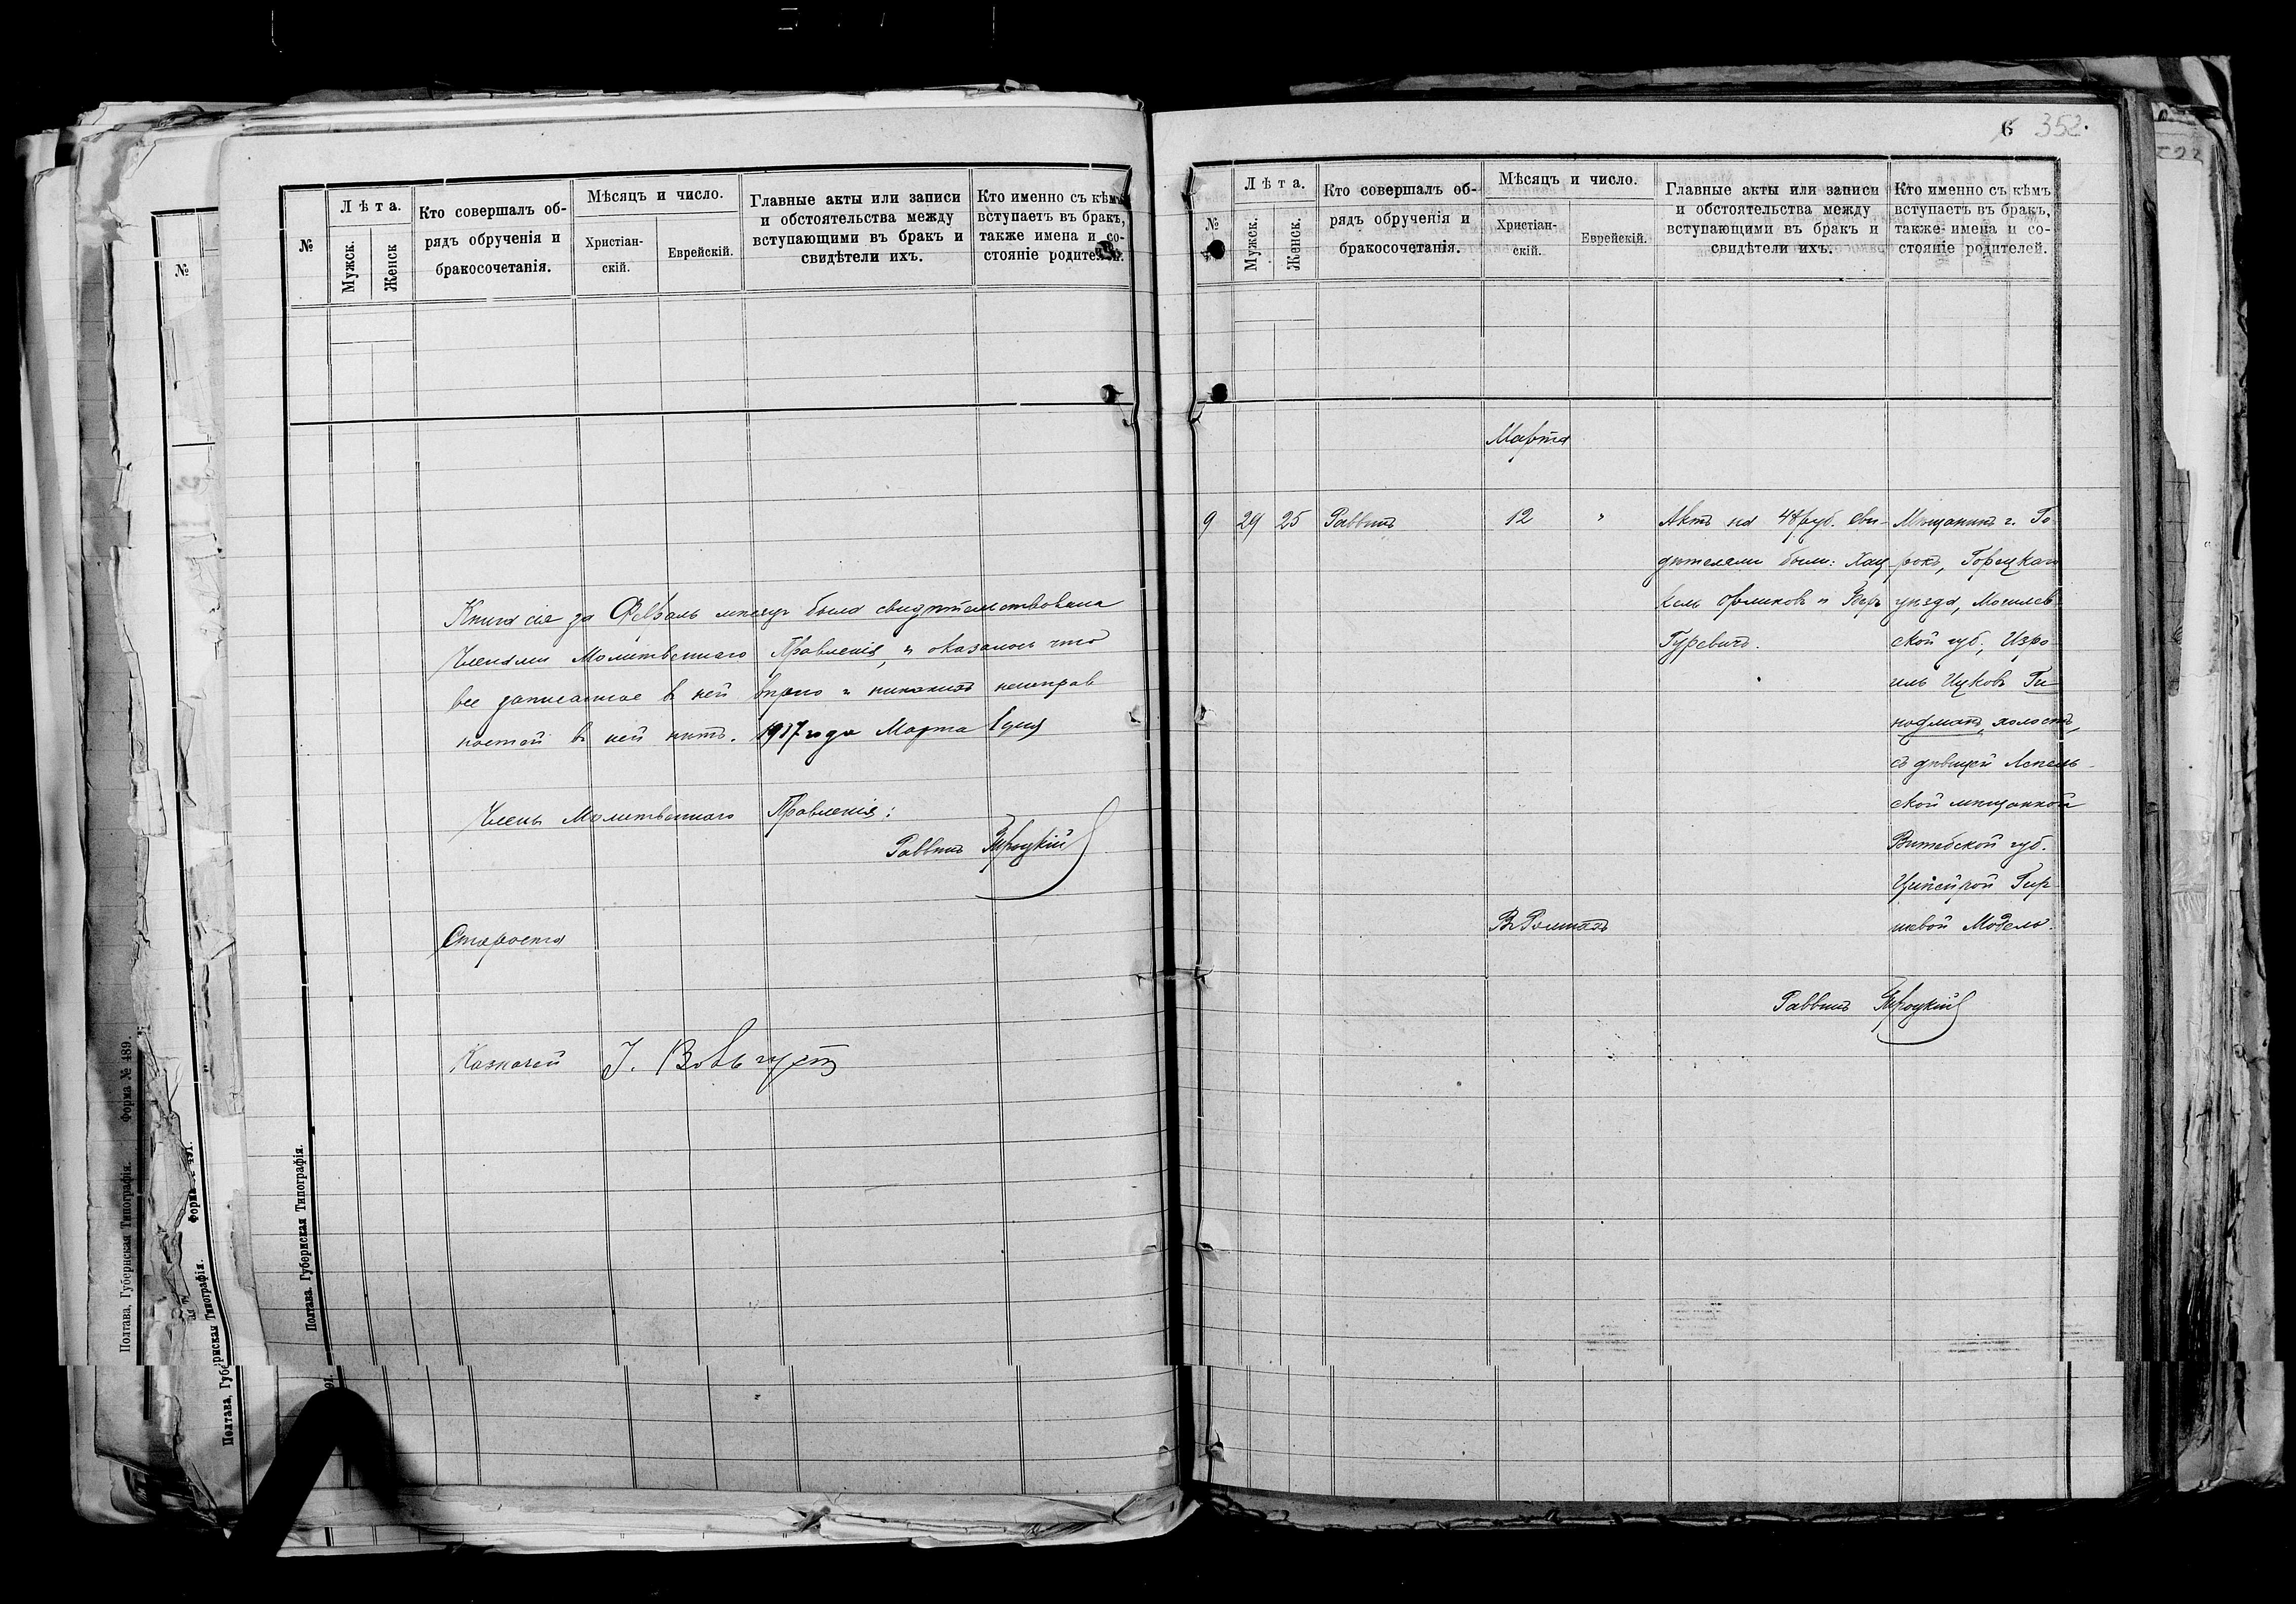 №
Лѣта.
Мужск.
Женск
Кто совершалъ об-
рядъ обрученія и
бракосочетанія.
Мѣсяцъ и число.
Христіан-
скій.
Еврейскій.
Главные акты или записи
и обстоятельства между
вступающими въ бракъ и
свидѣтели ихъ.
Кто именно съ кѣмъ
вступаетъ въ бракъ,
также имена и со-
стояніе родителей.
Книга сія за Февраль мѣсяцъ была свидѣтельствована
Членами Молитвеннаго Правленія, и оказалось что
все записанное въ ней вѣрно и никакихъ неисправ
ностей въ ней нѣтъ. 1917 года Марта 1 дня
Члены Молитвеннаго Правленія:
Раввинъ
Староста
Казначей І.
Полтава. Губернская Типографія.
№
Полтава, Губернская Типографія. Форма № 489.
6 352.
№
Лѣта.
Мужск.
Женск.
Кто совершалъ об-
рядъ обрученія и
бракосочетанія.
Мѣсяцъ и число.
Христіан-
скій.
Еврейскій.
Главные акты или записи
и обстоятельства между
вступающими въ бракъ и
свидѣтели ихъ.
Кто именно съ кѣмъ
вступаетъ въ бракъ,
также имена и со-
стояніе родителей.
Марта
9 29 25 Раввинъ 12 "
Актъ на 48 руб. Сви-
дѣтелями были: Хац
кель и Беръ
Гуревичъ.
Мѣщанинъ г. Го
рокъ, Горецкаго
уѣзда, Могилев
ской губ., Изра
иль Ицковъ Ги
нодманъ, холостъ,
съ дѣвицей Лепель-
ской мѣщанкой
Витебской губ.
Гир
шевой Модель.
Въ Ромнахъ
Раввинъ